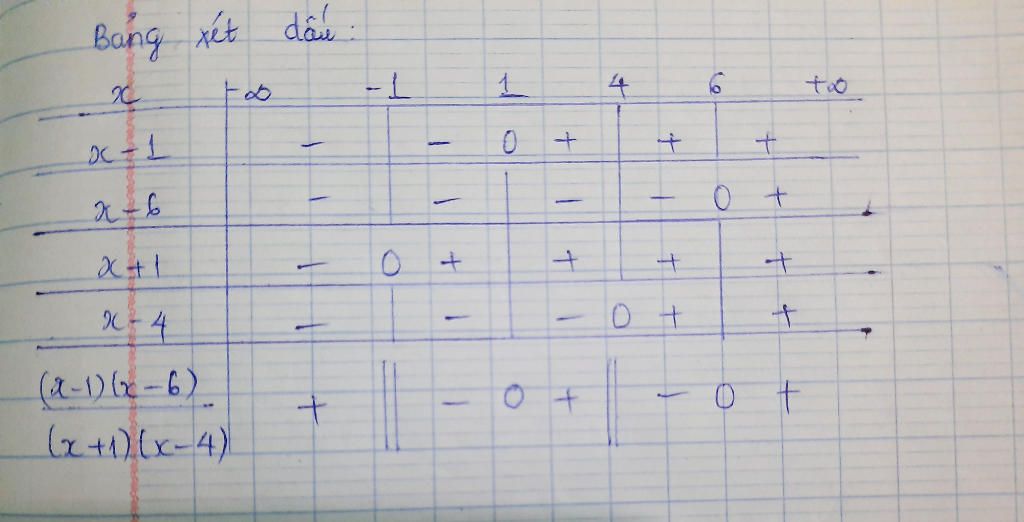 Bảng xét dấu:
x -∞ -1 1 4 6 +∞
x-1 - - 0 + + +
x-6 - - - - 0 +
x+1 - 0 + + + +
x-4 - - - 0 + +
(x-1)(x-6)
+ || - 0 + || - 0 +
(x+1)(x-4)